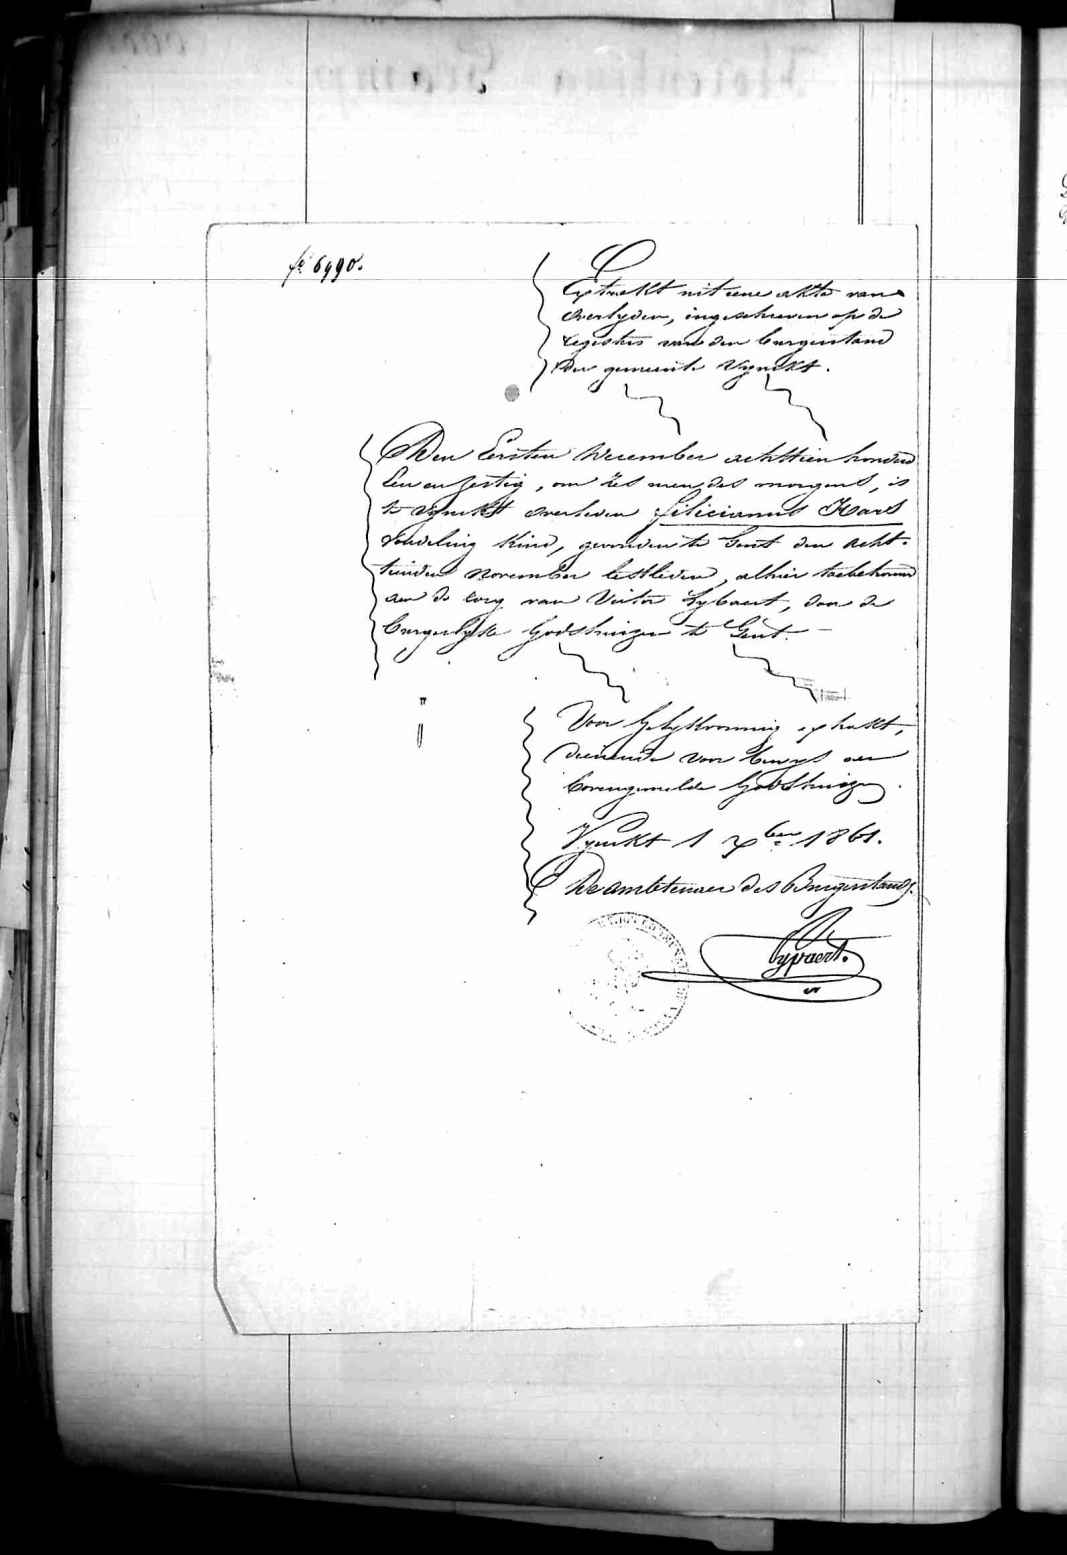 fº 6990.
Extrakt uit eene akte van
Overlyden, ingeschreven op de
registers van den burgerstand
der gemeente Vynckt.
Den Eersten December achttien honderd
Een en zestig, om zes uren des morgens, is
te Vynckt overleden Felicianus Kars
vondeling kind, gevonden te Gent den acht-
tienden November lestleden, alhier toebetrouwd
aen de zorg van Victor Lybaert, door de
burgerlyke Godshuizen te Gent.
Voor gelykvormig extrakt,
dienende voor bewys aen
bovengemelde Godshuizen.
Vynckt 1 Xber 1861.
De ambtenaer des Burgerstands.